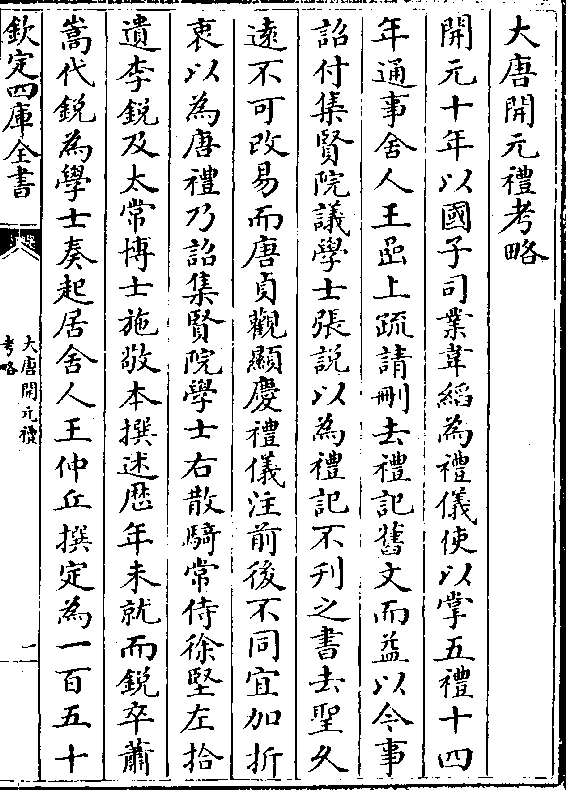 大唐開元禮考略
開元十年以國子司業韋縚為禮儀使以掌五禮十四
年通事舍人王嵒上疏請刪去禮記舊文而益以今事
詔付集賢院議學士張說以為禮記不刋之書去聖久
遠不可改易而唐貞觀顯慶禮儀注前後不同宜加折
衷以為唐禮乃詔集賢院學士右散騎常侍徐堅左拾
遺李銳及太常博士施敬本撰述歴年未就而銳卒蕭
嵩代銳為學士奏起居舍人王仲丘撰定為一百五十
欽定四庫全書
大唐開元禮
考略
二